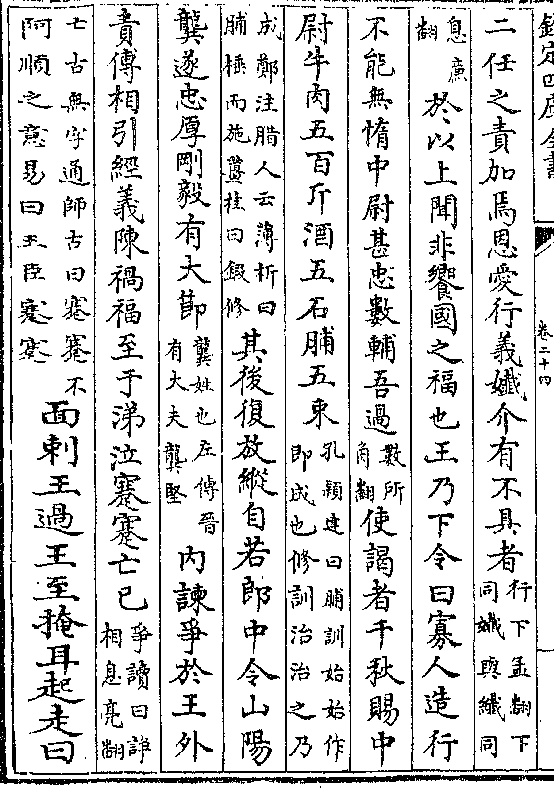 欽定四庫全書
卷二十四
二任之責加焉恩愛行義孅介有不具者行下孟翻下同孅與纖同
息廉翻於以上聞非饗國之福也王乃下令曰寡人造行
不能無惰中尉甚忠數輔吾過數所角翻使謁者千秋賜中
尉牛肉五百斤酒五石脯五束孔穎達曰脯訓始始作即成也修訓治治之乃
成鄭注腊人云薄析曰脯棰而施薑桂曰鍛修其後復放縱自若郎中令山陽
龔遂忠厚剛毅有大節龔姓也左傳晉有大夫龔堅內諫爭於王外
責傅相引經義陳禍福至于涕泣蹇蹇亡已爭讀曰諍相息亮翻
亡古無字通師古曰蹇蹇不阿順之意易曰王臣蹇蹇面刺王過王至掩耳起走曰